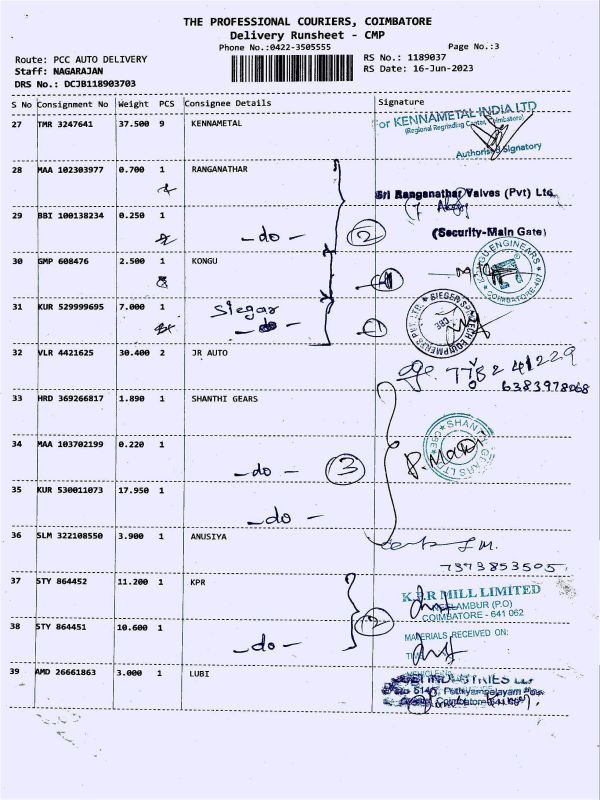 THE PROFESSIONAL COURIERS, COIMBATORE
Delivery Runsheet - CMP
Phone No.:0422-3505555
Page No.:3
Route: PCC AUTO DELIVERY
RS No.: 1189037
Staff: NAGARAJAN
RS Date: 16-Jun-2023
DRS No.: DCJB118903703
S No Consignment No Weight PCS Consignee Details Signature
27 TMR 3247641 37.500 9 KENNAMETAL
For KENNAMETAL INDIA LTD
(Regional Regrinding Center, Coimbatore)
Authorised Signatory
28 MAA 102303977 0.700 1 RANGANATHAR
Sri Ranganathar Valves (Pvt) Ltd.
29 BBI 100138234 0.250 1
-do- 2
(Security-Main Gate)
30 GMP 608476 2.500 1 KONGU
1
KONGU ENGINEARS
COIMBATORE-407
31 KUR 529999695 7.000 1 Siegar
1
SIEGER SPINTECH EQUIPMENTS PVT. LTD.
CBE
32 VLR 4421625 30.400 2 JR AUTO
6383978068
33 HRD 369266817 1.890 1 SHANTHI GEARS
SHANTHI GEARS LTD
CBE
34 MAA 103702199 0.220 1
-do- 3
35 KUR 530011073 17.950 1
-do-
36 SLM 322108550 3.900 1 ANUSIYA
7373853505
37 STY 864452 11.200 1 KPR
K.P.R MILL LIMITED
COIMBATORE - 641 062
38 STY 864451 10.600 1
-do- 2
MATERIALS RECEIVED ON:
39 AMD 26661863 3.000 1 LUBI